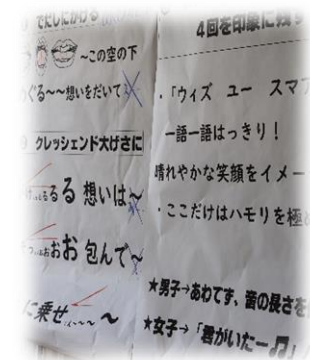 でだしにかける
～この空の下
ぐる～～想いをだいて
クレッシェンド大げさに
るる 想いは～
おお 包んで～
に乗せ
4回を印象に残す
・「ウィズ ユー スマ
一語一語はっきり！
晴れやかな笑顔をイメー
・ここだけはハモリを極
★男子→あわてず、音の長さを
★女子→「君がいたー♫」